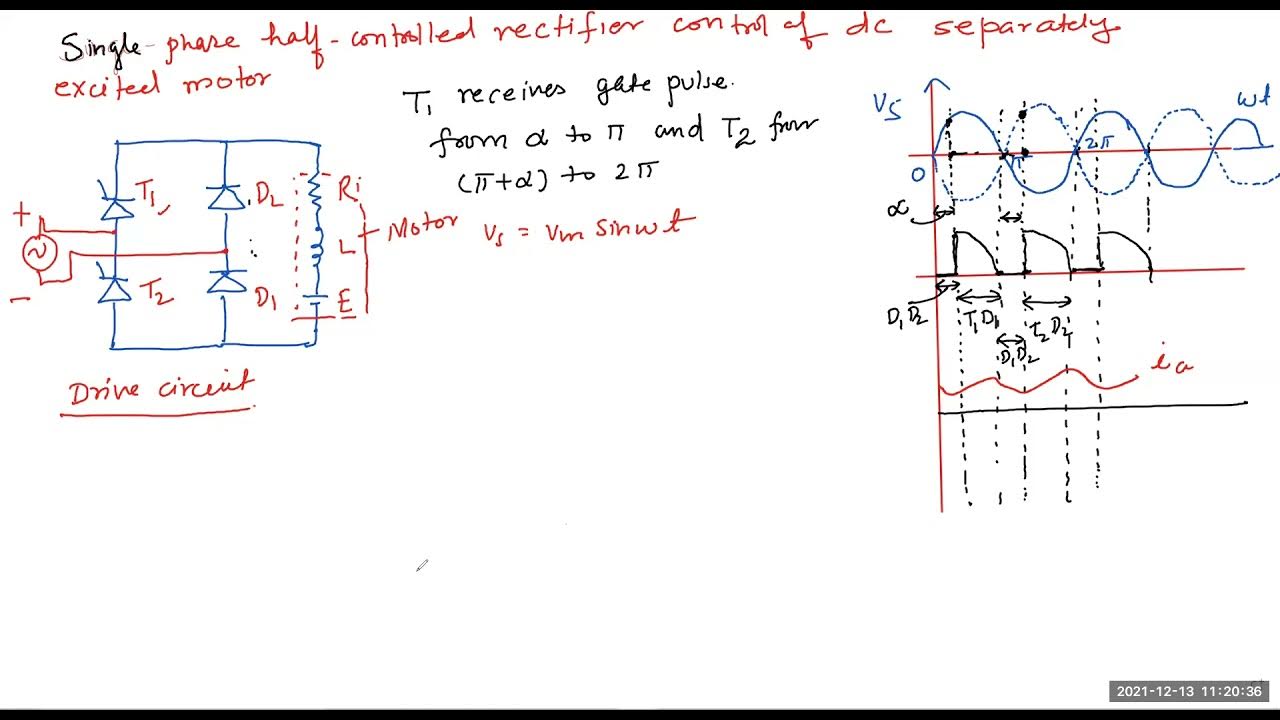 Single-phase half-controlled rectifier control of dc separately
excited motor
T1 receives gate pulse.
from α to π and T2 from
(π+α) to 2π
Vs = Vm sinωt
+
-
T1
D2
T2
D1
Ri
L
E
Motor
Drive circuit
Vs
ωt
0
π
2π
α
D1D2
T1D1
D1D2
T2D2
ia
2021-12-13 11:20:36